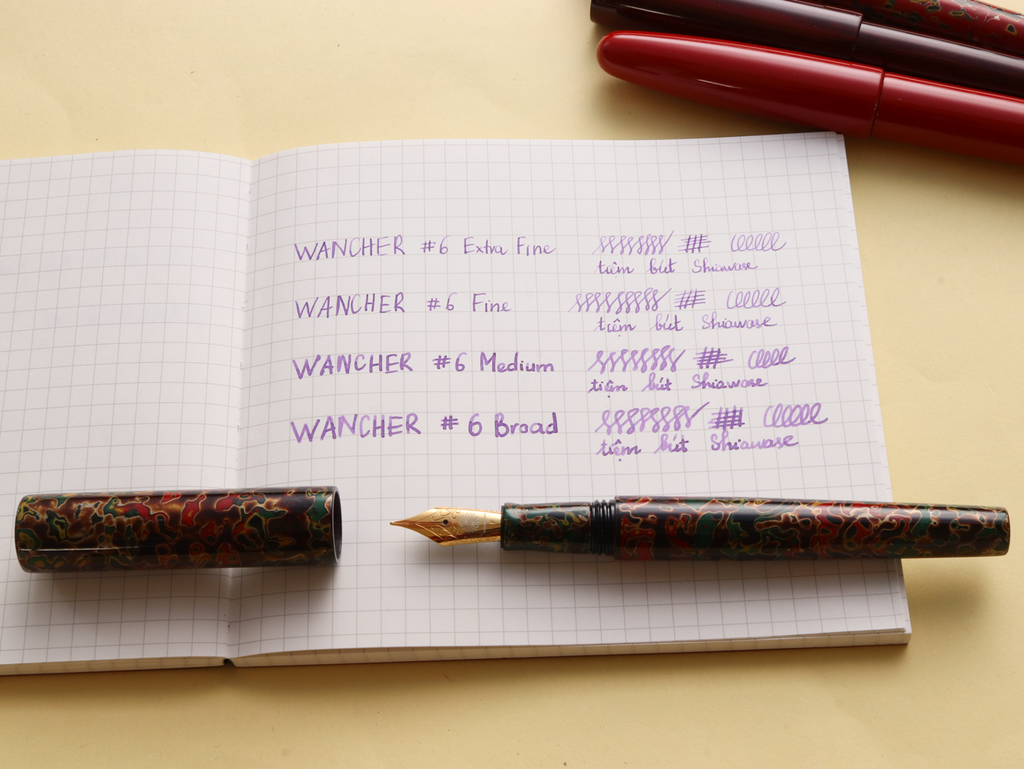 WANCHER #6 Extra Fine
tiệm bút Shiawase
WANCHER #6 Fine
tiệm bút Shiawase
WANCHER #6 Medium
tiệm bút Shiawase
WANCHER #6 Broad
tiệm bút Shiawase